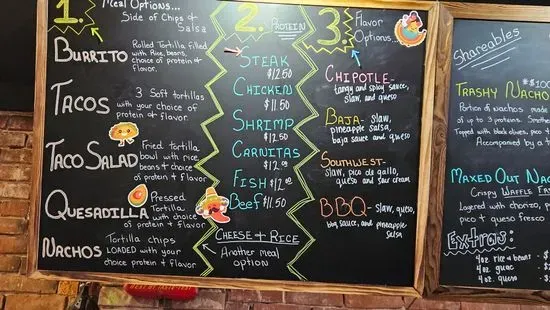 1. Meal Options...
Side of Chips &
Salsa
BURRITO
Rolled Tortilla filled
with Rice, beans,
choice of protein &
flavor.
TACOS
3 Soft tortillas
with your choice of
protein + flavor.
TACO SALAD
Fried tortilla
bowl with rice,
beans + choice
of protein + flavor
QUESADILLA
Pressed
Tortilla
with choice
of protein
+ flavor
NACHOS
Tortilla chips
LOADED with your
choice protein + flavor
2. PROTEIN
STEAK
$12.50
CHICKEN
$11.50
SHRIMP
$12.50
CARNITAS
$12.00
FISH $12.00
Beef $11.50
CHEESE + RICE
Another meal
option
3 Flavor
Options...
CHIPOTLE-
tangy and spicy sauce,
slaw, and queso
BAJA- slaw,
pineapple salsa,
baja sauce and queso
SOUTHWEST-
slaw, pico de gallo,
queso and sour cream
BBQ- slaw, queso,
bbq sauce, and pineapple
salsa
Shareables
TRASHY NACHO
Portion of nachos made
of up to 3 proteins. Smothe
Topped with black olives, pico
Accompanied by a
MAXED OUT NA
Crispy WAFFLE FR
Layered with chorizo, p
pico + queso fresco
Extras:
4oz rice & beans
4oz guac
4oz queso